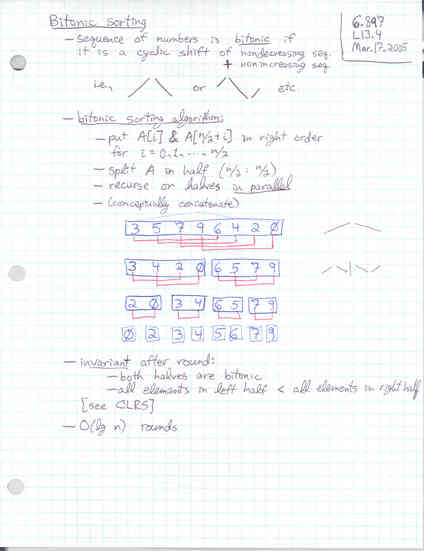 Bitonic sorting
6.897
L13.4
Mar. 17, 2005
– sequence of numbers is bitonic if
it is a cyclic shift of nondecreasing seq.
+ nonincreasing seq.
i.e., or etc.
– bitonic sorting algorithm:
– put A[i] & A[n/2+i] in right order
for i = 0, 1, ..., n/2
– split A in half (n/2 : n/2)
– recurse on halves in parallel
– (conceptually concatenate)
3 5 7 9 6 4 2 0
3 4 2 0 6 5 7 9
2 0 3 4 6 5 7 9
0 2 3 4 5 6 7 9
– invariant after round:
– both halves are bitonic
– all elements in left half < all elements in right half
[see CLRS]
– O(lg n) rounds